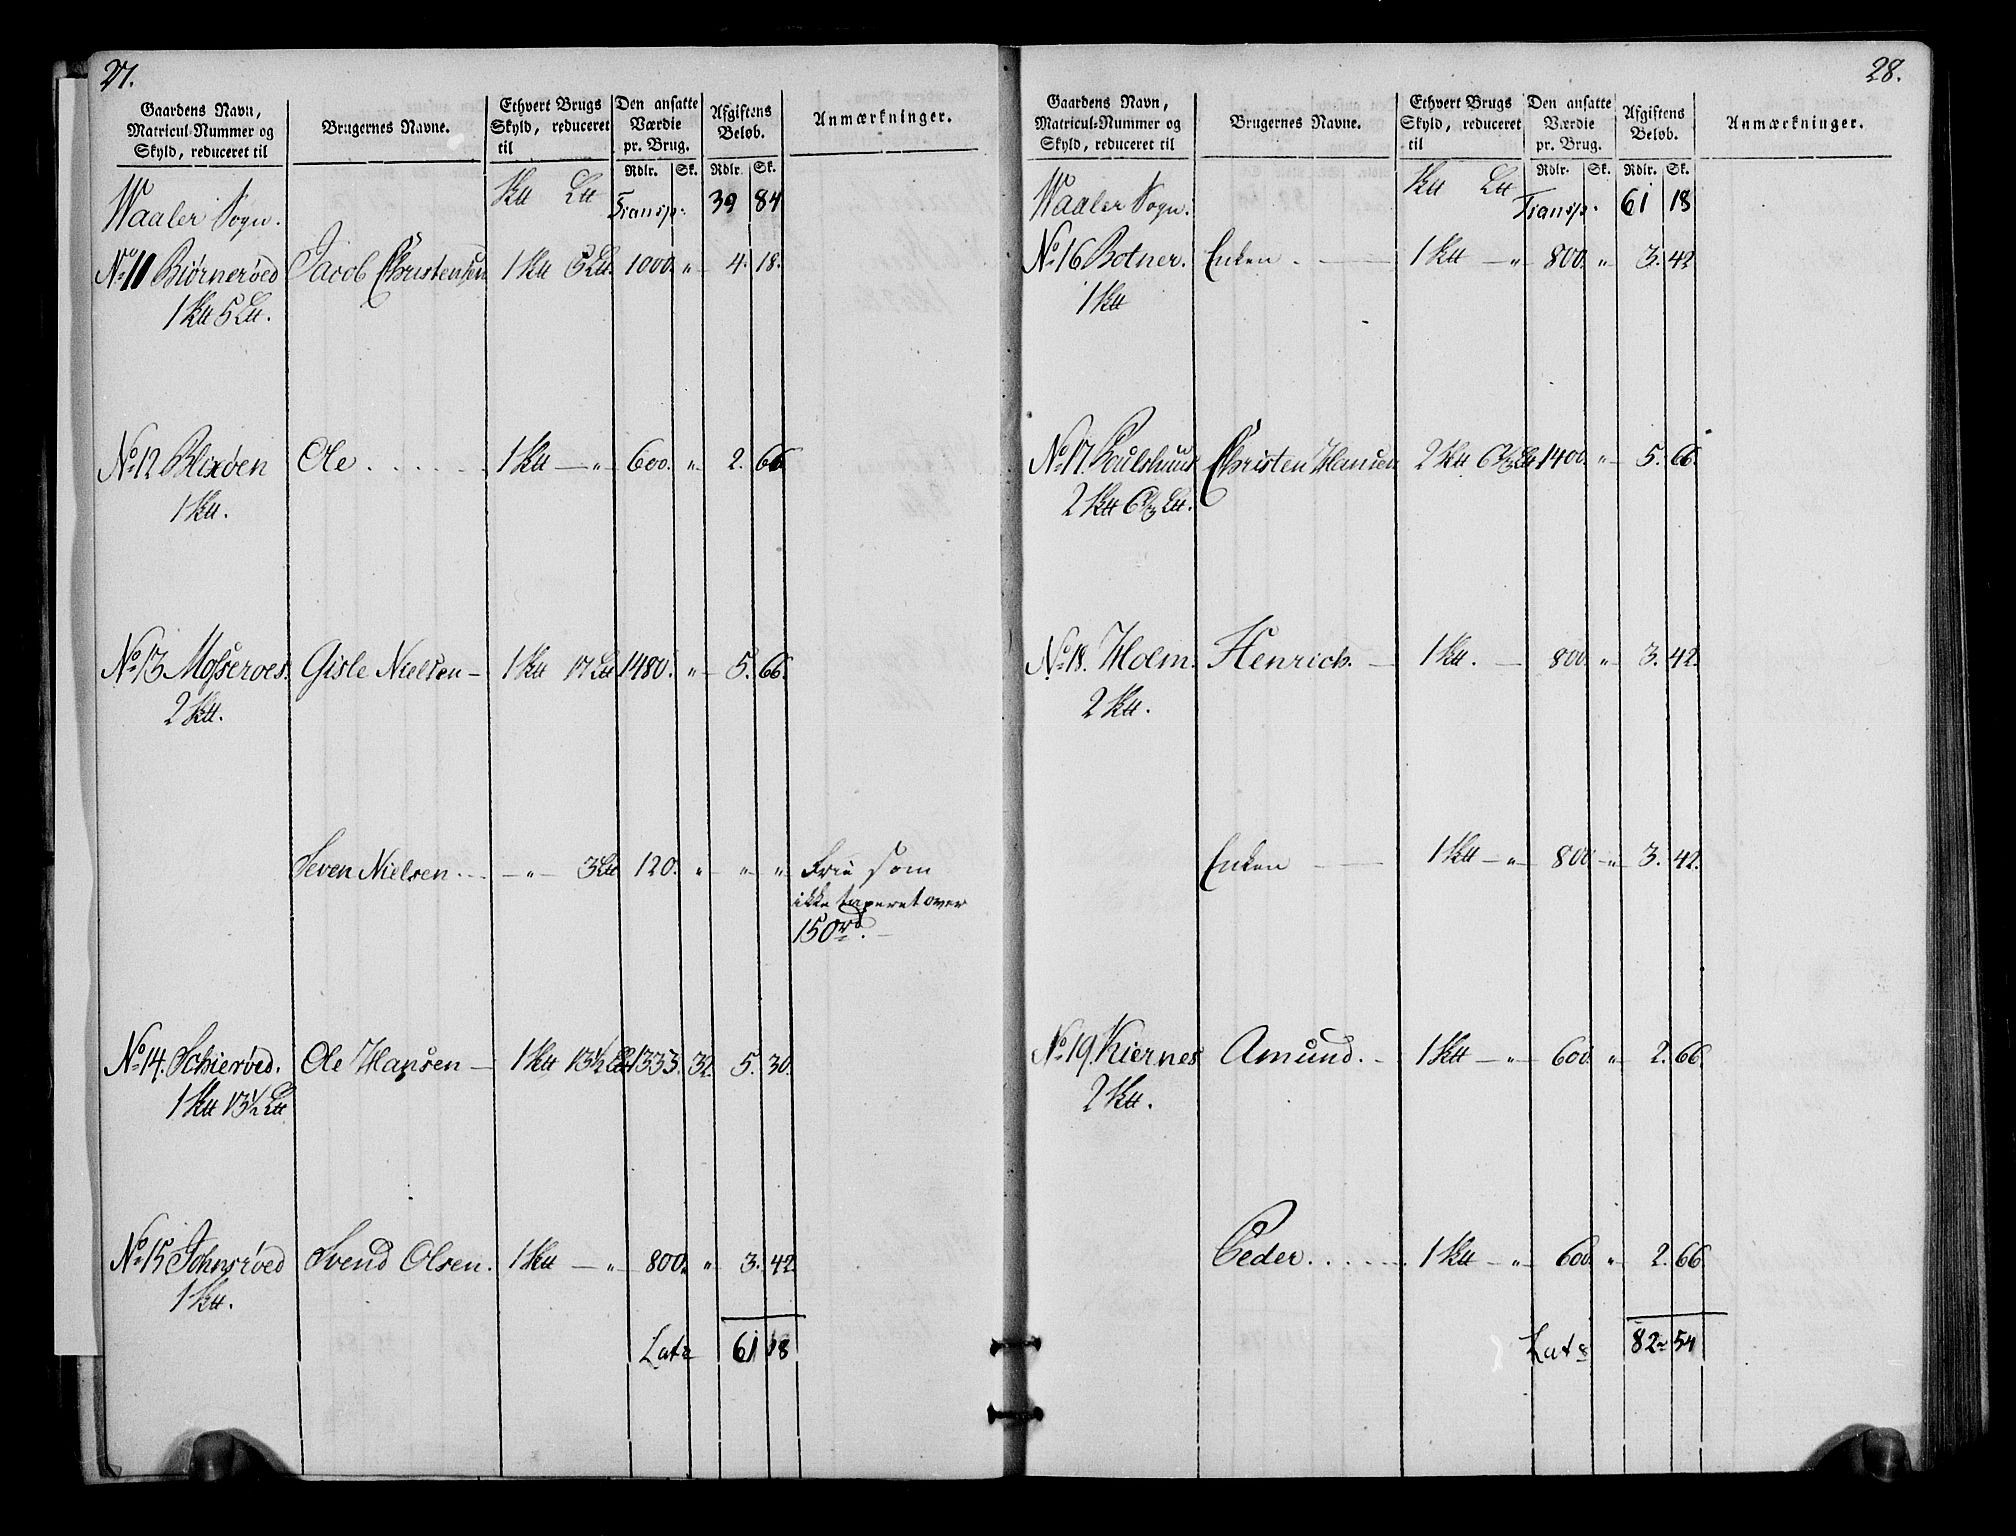 27.
Gaardens Navn, Matricul-Nummer og Skyld, reduceret til | Brugernes Navne. | Ethvert Brugs Skyld, reduceret til | Den ansatte Værdie pr. Brug. Rdlr. Sk. | Afgiftens Beløb. Rdlr. Sk. | Anmærkninger.
Waaler Sogn. Sk℔ L℔ Transp: 39 84
No 11 Biørnerøed Jacob Christensen 1 Sk℔ 5 L℔. 1000. " 4. 18.
1 Sk℔ 5 L℔.
No 12 Blixøen Ole . . . . . . 1 Sk℔ — " 600. " 2. 66
1 Sk℔.
No 13 Mosseroes. Gisle Nielsen — 1 Sk℔ 17 L℔ 1480. " 5. 66.
2 Sk℔.
Seven Nielsen . . . — " — 3 L℔ 120. " " " Frie som
ikke taxeret over
150 rd. —
No 14. Schierøed. Ole Hansen — 1 Sk℔ 13½ L℔ 1333. 32. 5. 30.
1 Sk℔ 13½ L℔
No 15 Johnsrøed Svend Olsen. 1 Sk℔ — " 800. " 3. 42
1 Sk℔.
Late 61 18
28.
Gaardens Navn, Matricul-Nummer og Skyld, reduceret til | Brugernes Navne. | Ethvert Brugs Skyld, reduceret til | Den ansatte Værdie pr. Brug. Rdlr. Sk. | Afgiftens Beløb. Rdlr. Sk. | Anmærkninger.
Waaler Sogn. Sk℔ L℔ Transp. 61 18
No 16 Botner. Enken . — 1 Sk℔ — " 800. " 3. 42
1 Sk℔
No 17. Poulshuus Christen Hansen 2 Sk℔ 6⅔ L℔ 1400. " 5. 66.
2 Sk℔ 6⅔ L℔.
No 18. Holm. Henrich. — 1 Sk℔. — 800. " 3. 42.
2 Sk℔.
Enken — 1 Sk℔ — " 800 " 3. 42.
No 19. Kiernes Amund. — 1 Sk℔ — " 600. " 2. 66.
2 Sk℔.
Peder . . . . . . 1 Sk℔ — " 600. " 2. 66.
Late 82 54